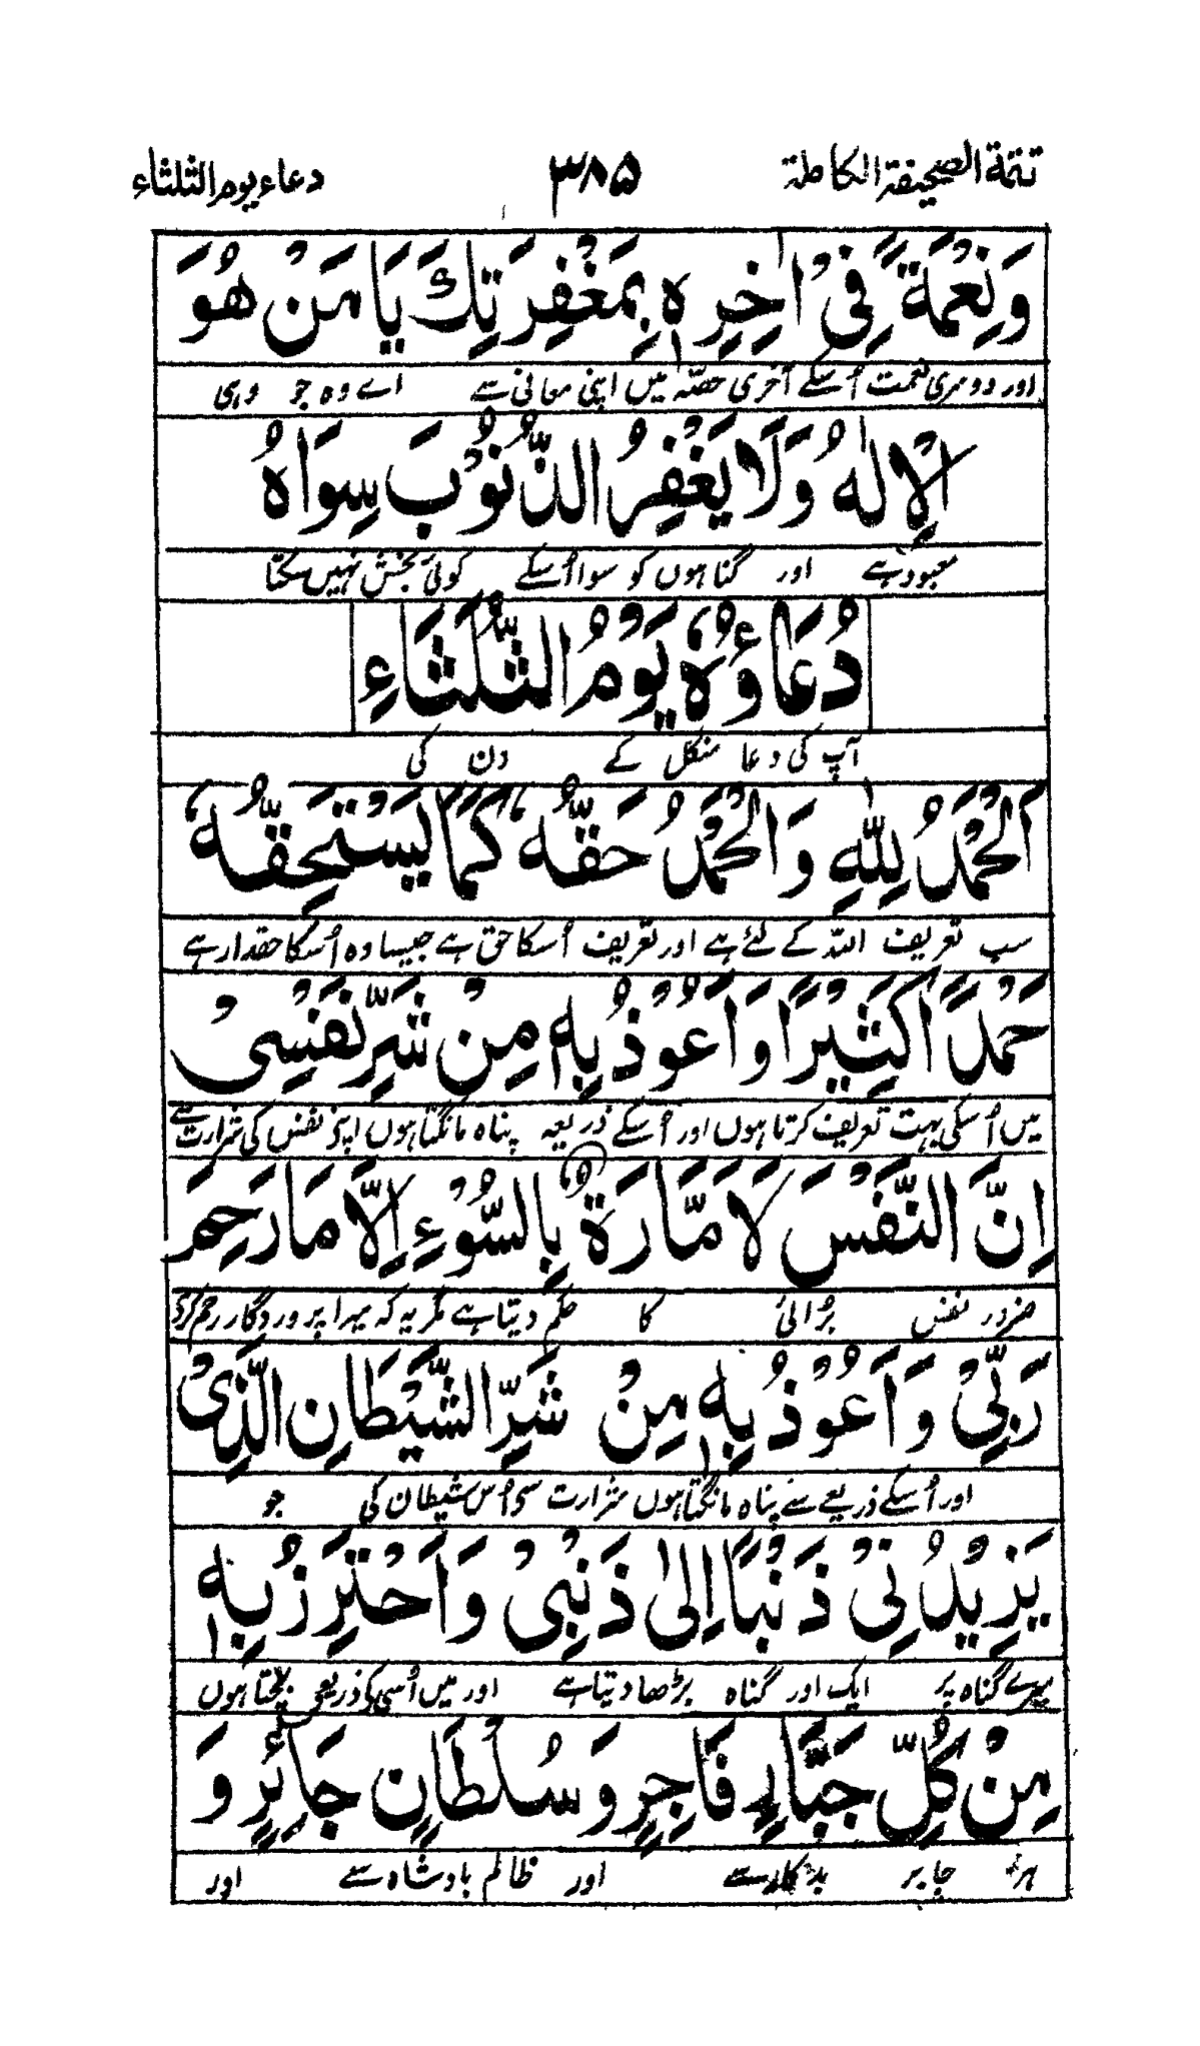 تتمة الصحیفة الکاملة ۳۸۵ دعاء یوم الثلثاء
وَنِعْمَةً فِیْ اٰخِرِهٖ بِمَغْفِرَتِكَ یَا مَنْ هُوَ
اور دوسری نعمت اُسکے آخری حصّہ میں اپنی معافی سے اے وہ جو وہی
الْاِلٰهُ وَلَا یَغْفِرُ الذُّنُوْبَ سِوَاهُ
معبود ہے اور گناہوں کو سوا اُسکے کوئی بخش نہیں سکتا
دُعَاؤُهٗ یَوْمُ الثُّلَثَاءِ
آپ کی دعا منگل کے دن کی
اَلْحَمْدُ لِلّٰهِ وَالْحَمْدُ حَقُّهٗ كَمَا یَسْتَحِقُّهٗ
سب تعریف اللہ کے لئے ہے اور تعریف اُسکا حق ہے جیسا وہ اُسکا حقدار ہے
حَمْدًا كَثِیْرًا وَاَعُوْذُ بِهٖ مِنْ شَرِّ نَفْسِیْ
میں اُسکی بہت تعریف کرتا ہوں اور اُسکے ذریعہ پناہ مانگتا ہوں اپنے نفس کی شرارت سے
اِنَّ النَّفْسَ لَاَمَّارَةٌ بِالسُّوْءِ اِلَّا مَا رَحِمَ
ضرور نفس بُرائی کا حکم دیتا ہے مگر یہ کہ میرا پروردگار رحم کرے
رَبِّیْ وَاَعُوْذُ بِهٖ مِنْ شَرِّ الشَّیْطَانِ الَّذِیْ
اور اُسکے ذریعے سے پناہ مانگتا ہوں شرارت سی اُس شیطان کی جو
یَزِیْدُنِیْ ذَنْبًا اِلٰی ذَنْبِیْ وَاَحْتَرِزُ بِهٖ
میرے گناہ پر ایک اور گناہ بڑھا دیتا ہے اور میں اُسی کے ذریعی بچتا ہوں
مِنْ كُلِّ جَبَّارٍ فَاجِرٍ وَسُلْطَانٍ جَائِرٍ وَ
ہر جابر بدکار سے اور ظالم بادشاہ سے اور